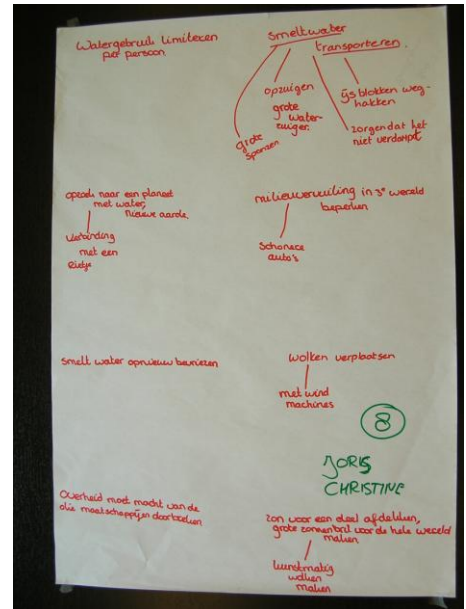 Watergebruik limiteren
per persoon.
smeltwater
transporteren.
opzuigen
grote
water-
zuiger.
grote
sponzen
ijsblokken weg-
hakken
zorgen dat het
niet verdampt
opzoek naar een planeet
met water,
nieuwe aarde.
verbinding
met een
rietje
milieuvervuiling in 3e wereld
beperken
schonere
auto's
smelt water opnieuw bevriezen
wolken verplaatsen
met wind
machines
8
JORIS
CHRISTINE
Overheid moet macht van de
olie maatschappijen doorbreken
zon voor een deel afdekken,
grote zonnenbril voor de hele wereld
maken
kunstmatig
wolken
maken